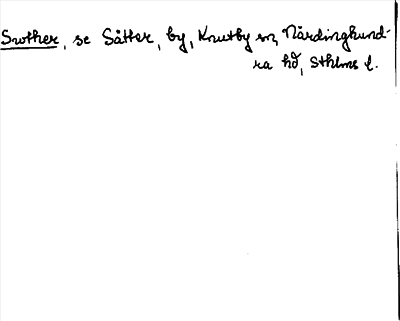 Swother, se Såtter, by, Knutby sn, Närdinghund-
ra hd, Sthlms l.